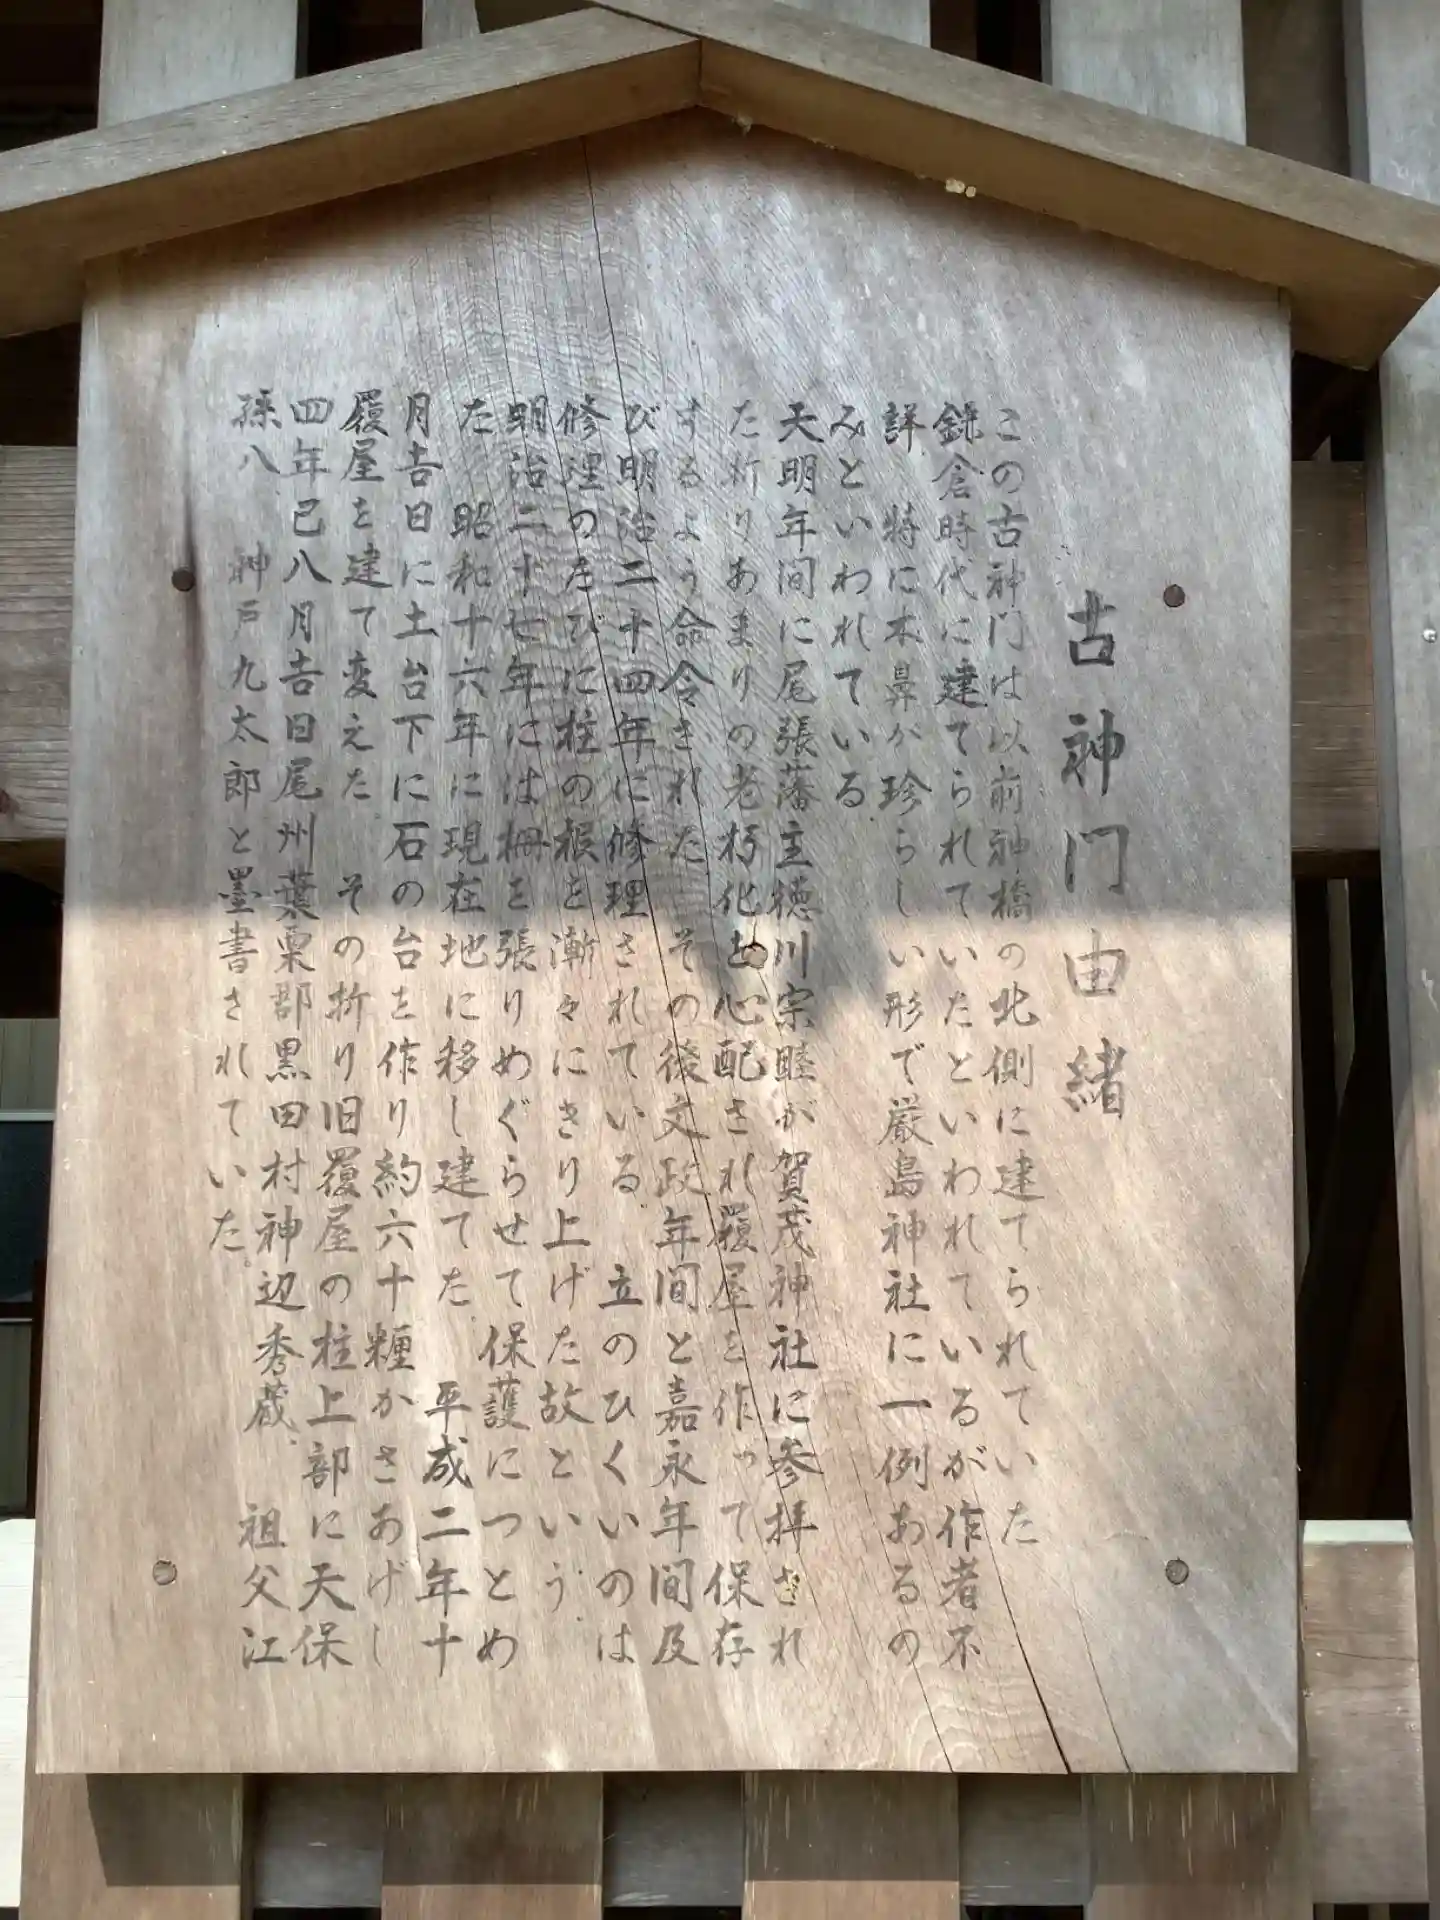 古神門由緒
この古神門は以前神橋の北側に建てられていた
鎌倉時代に建てられていたといわれているが作者不
詳 特に木鼻が珍らしい形で厳島神社に一例あるの
みといわれている
天明年間に尾張藩主徳川宗睦が賀茂神社に参拝され
た折りあまりの老朽化を心配され履屋を作って保存
するよう命令された その後文政年間と嘉永年間及
び明治二十四年に修理されている 立のひくいのは
修理のたびに柱の根を漸々にきり上げた故という
明治二十七年には柵を張りめぐらせて保護につとめ
た 昭和十六年に現在地に移し建てた 平成二年十
月吉日に土台下に石の台を作り約六十糎かさあげし
履屋を建て変えた その折り旧履屋の柱上部に天保
四年巳八月吉日尾州葉栗郡黒田村神辺秀蔵 祖父江
孫八 神戸九太郎と墨書されていた。